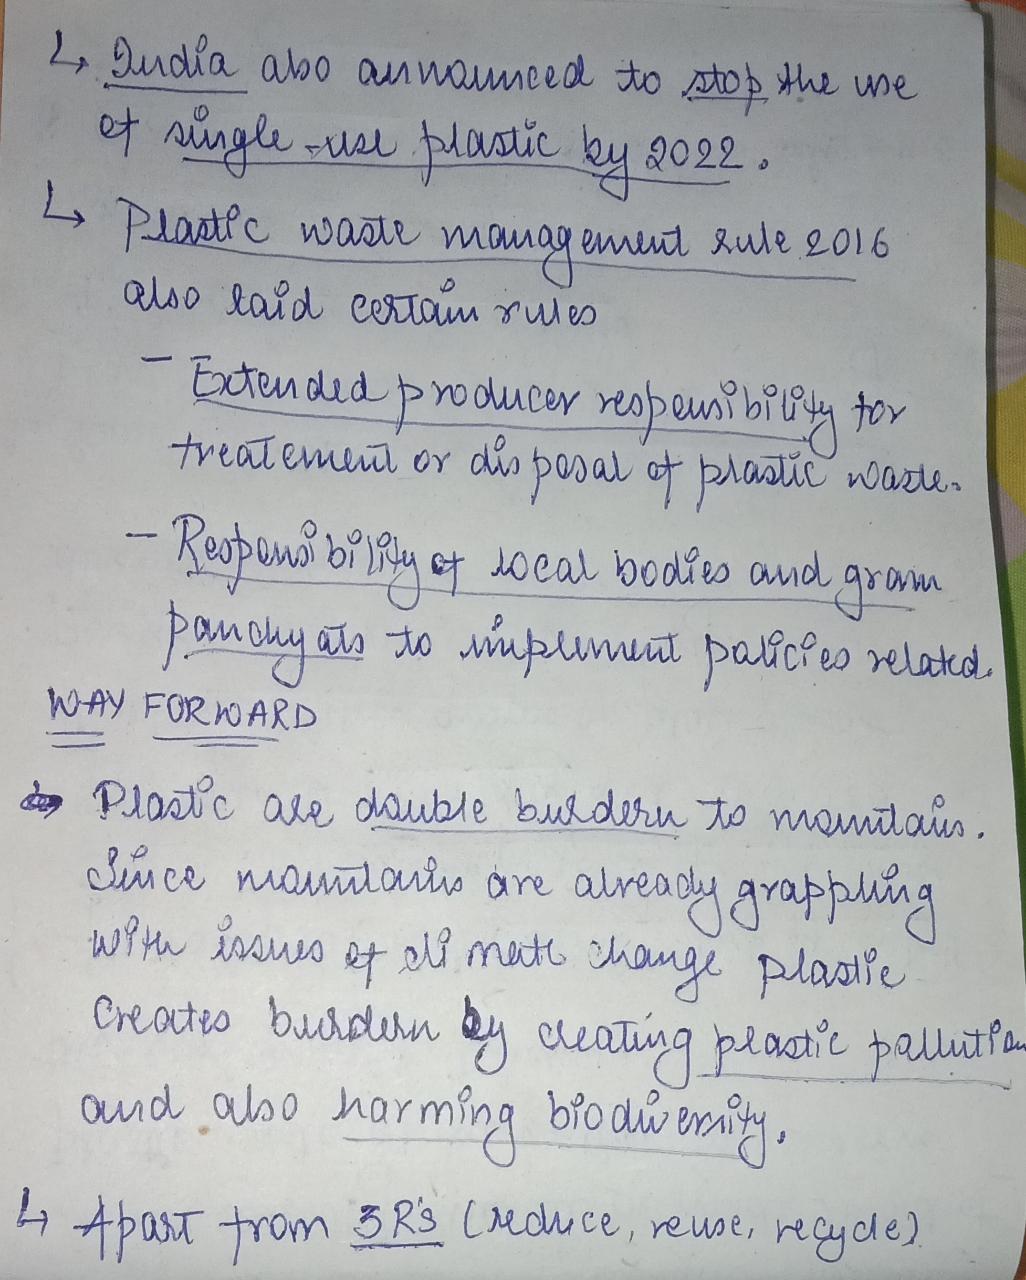 ↳ India also announced to stop the use
of single-use plastic by 2022.
↳ Plastic waste management rule 2016
also laid certain rules
- Extended producer responsibility for
treatement or disposal of plastic waste.
- Responsibility of local bodies and gram
panchyats to implement policies related.
WAY FORWARD
Plastic are double burdern to mountains.
Since mountains are already grappling
with issues of climate change plastic
creates burdern by creating plastic pollution
and also harming biodiversity.
↳ Apart from 3R's (reduce, reuse, recycle)